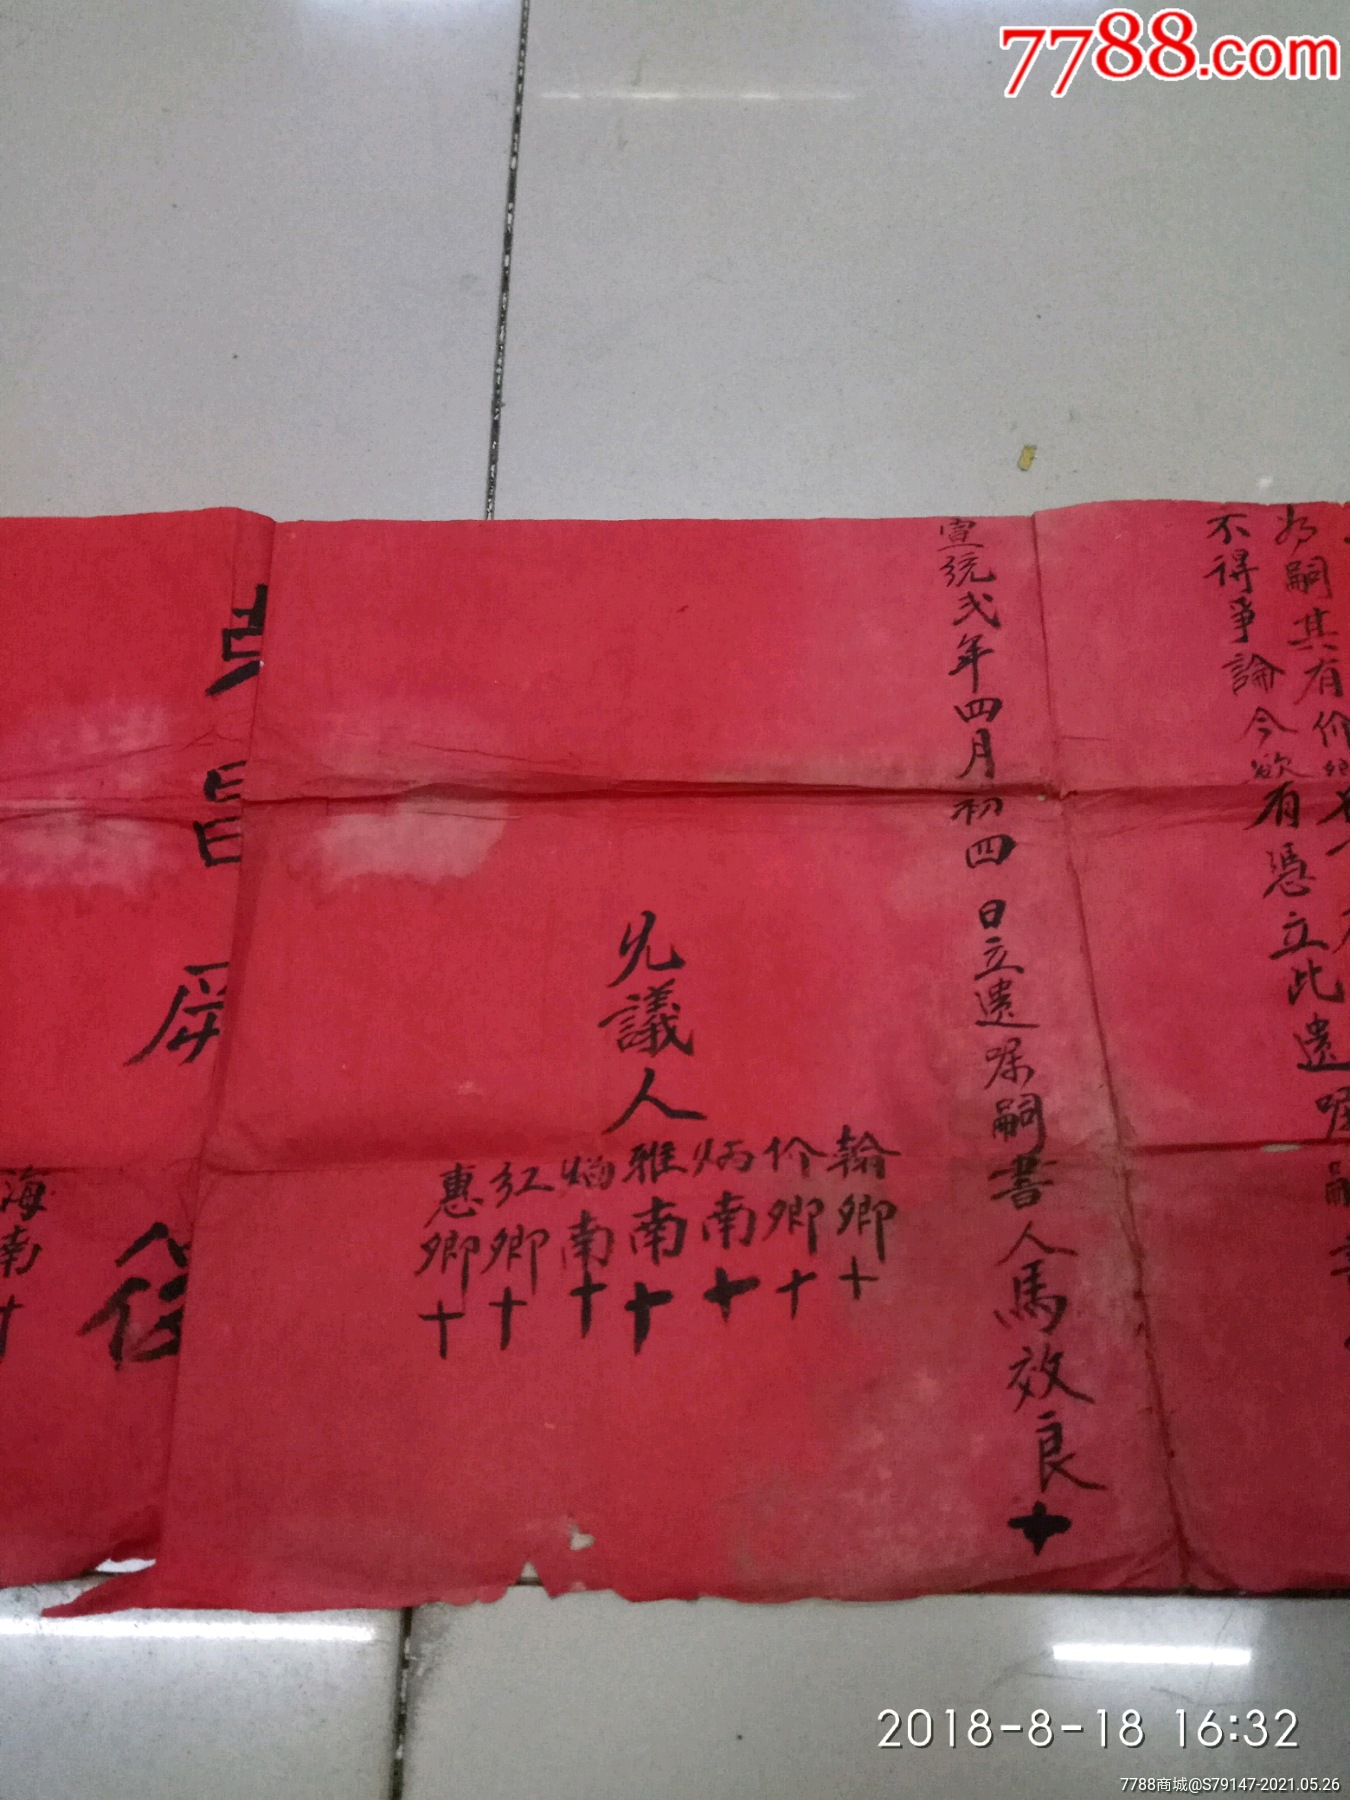 7788.com
為嗣其有价卿
不得爭論今欲有憑立此遺嘱
宣統弍年四月初四日立遺嘱嗣書人馬效良十
允議人
翰卿十
价卿十
炳南十
雅南十
南十
紅卿十
惠卿十
海南十
2018-8-18 16:32
7788商城@S79147-2021.05.26